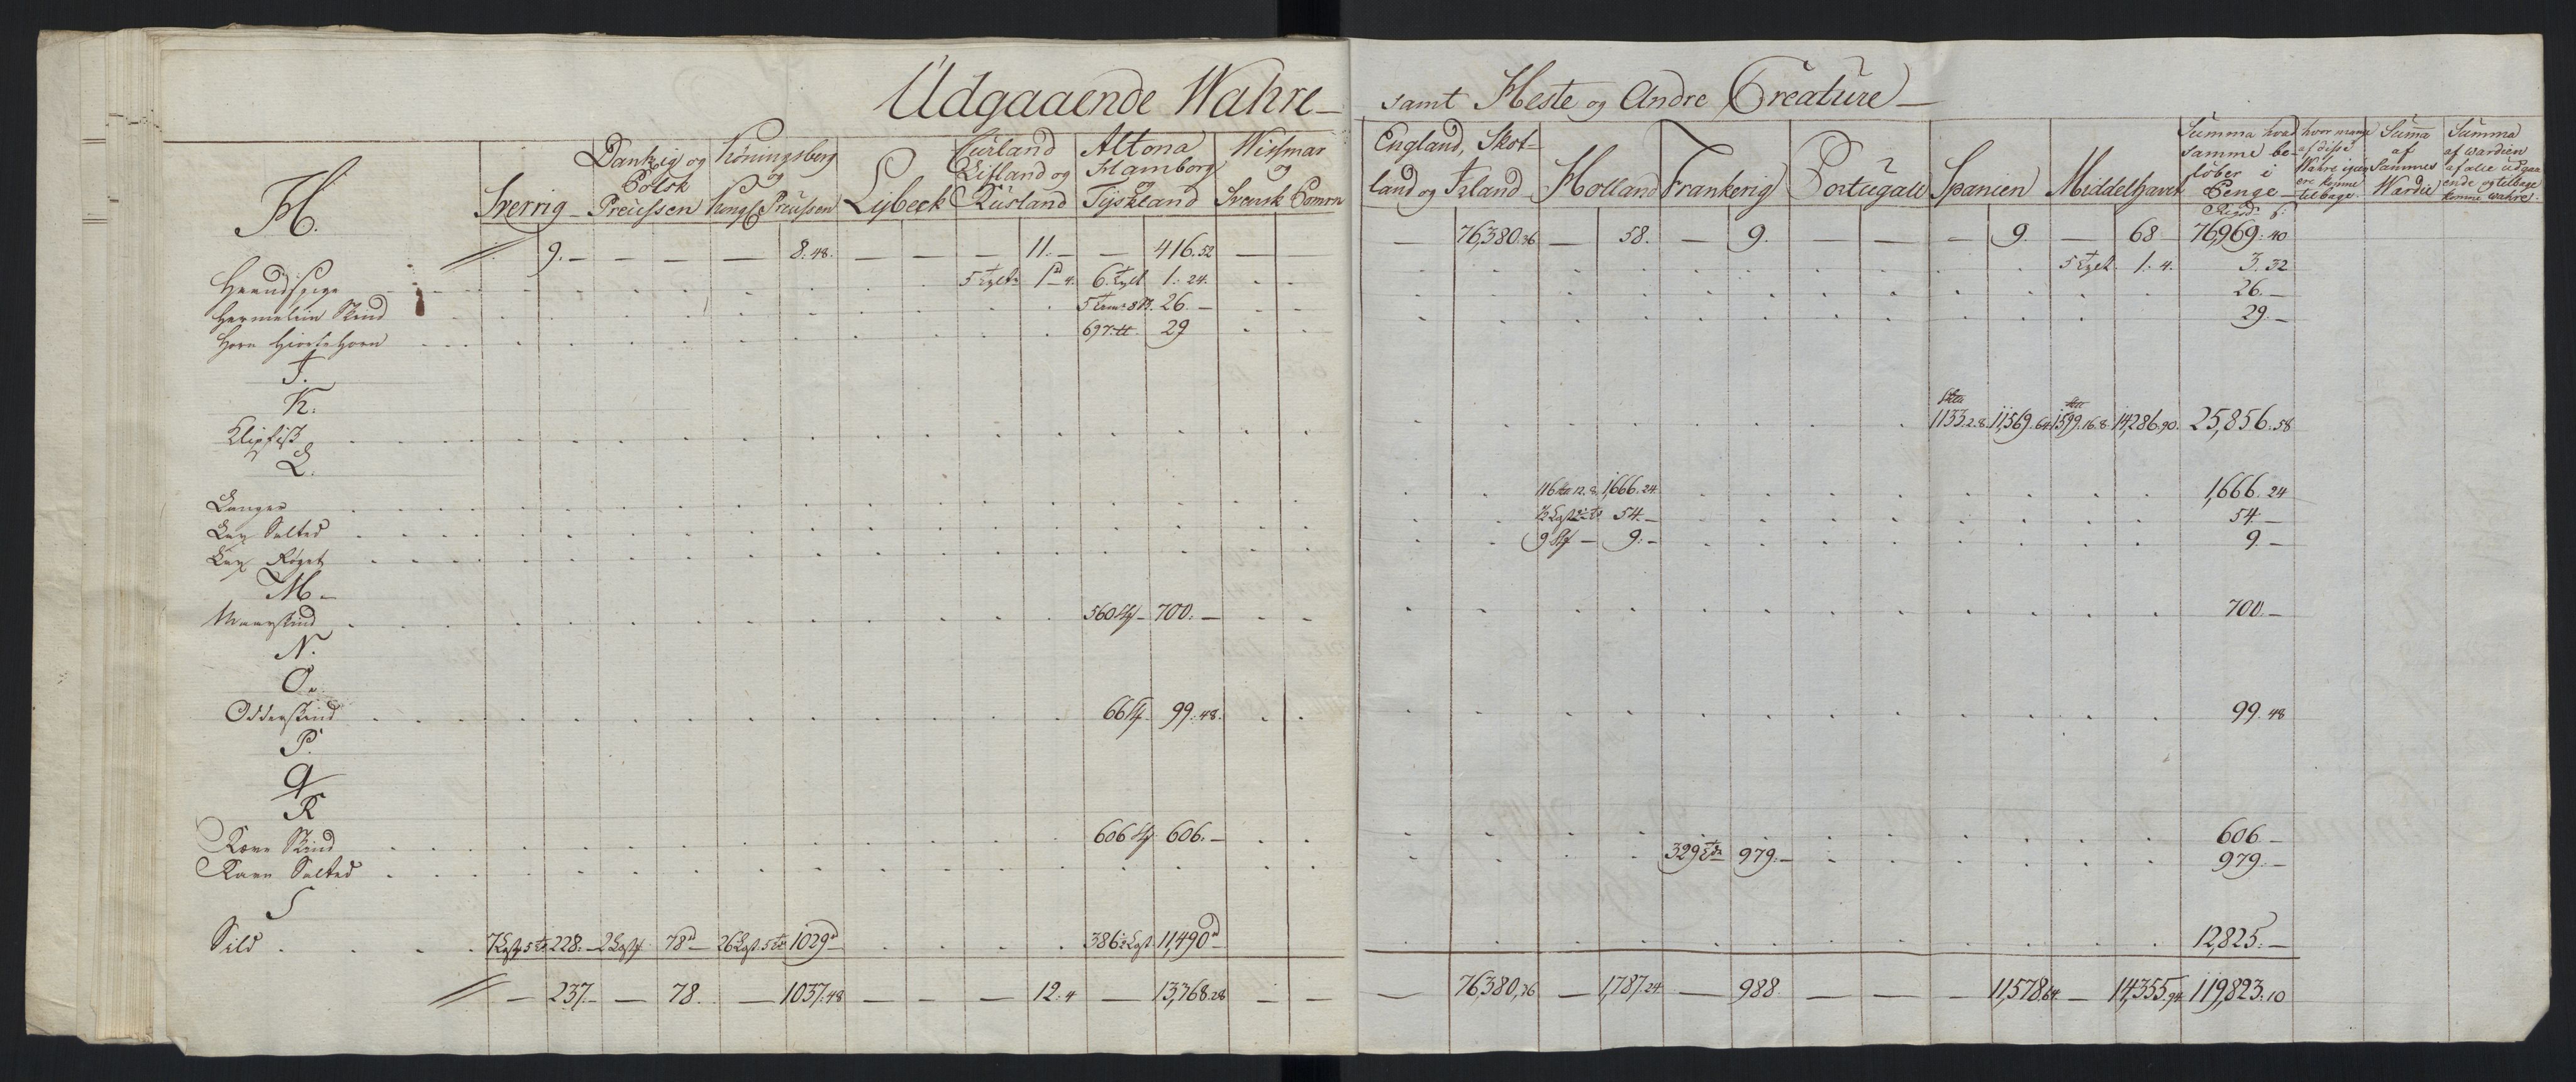 Udgaaende Wahre samt Heste og Andre Creature
H.
Sverrig
Dantzig og Polsk Preussen
Köningsberg og Kongl Preussen
Lybeck
Curland Lifland og Rusland
Altona Hamborg og Tyskland
Wissmar og Svensk Pomrn
England, Skot- land og Irland
Holland
Frankerig
Portugall
Spanien
Middelhavet
Summa hvad samme be- løber i Penge
hvor mange af disse Wahre igien ere komne tilbage.
Summa af Sammes Wardie
Summa af wardien af alle udgaa ende og tilbage komne wahre.
Rigsd. ß:
9. — — — — 8. 48. — — — 11. — — 416. 52 — — — 76,380. 36 — 58. — 9. — — — 9. — 68 76,969. 40
Haandspige 5 Tylt 1 — 4. 6. Tylt 1. 24. 5 Tylt 1. 4. 3. 32
Hermelin Skind 26. — 26. —
Horn Hiortehorn 697. ℔ 29 29. —
I.
K.
Klipfisk 1133. 2. 8. 11,569. 64 1599. 16. 8. 14,286. 90. 25,856. 58
L.
Langer 116 12. 8. 1,666. 24 1,666. 24
Lax Salted 54. — 54. —
Lax Røget 9 St. — 9. — 9. —
M.
Maarskind 560 St. 700. — 700. —
N.
O.
Odderskind 66 St. 99. 48. 99. 48
P.
Q
R
Ræve Skind 606 St. 606. — 606. —
Ravn Salted 329 Tdr 979. — 979. —
S
Sild 7 Lest 5 Td 228. — 2 Lest 78 — 26 Lest. 5 Td 1029 — 386½ Lest 11,490 12,825. —
— 237. — — 78. — 1037. 48 — — — 12. 4 — 13,368. 28 — — — 76,380. 36 — 1,787. 24 — 988. — — — 11,578. 64 — 14,355. 94 119,823. 10